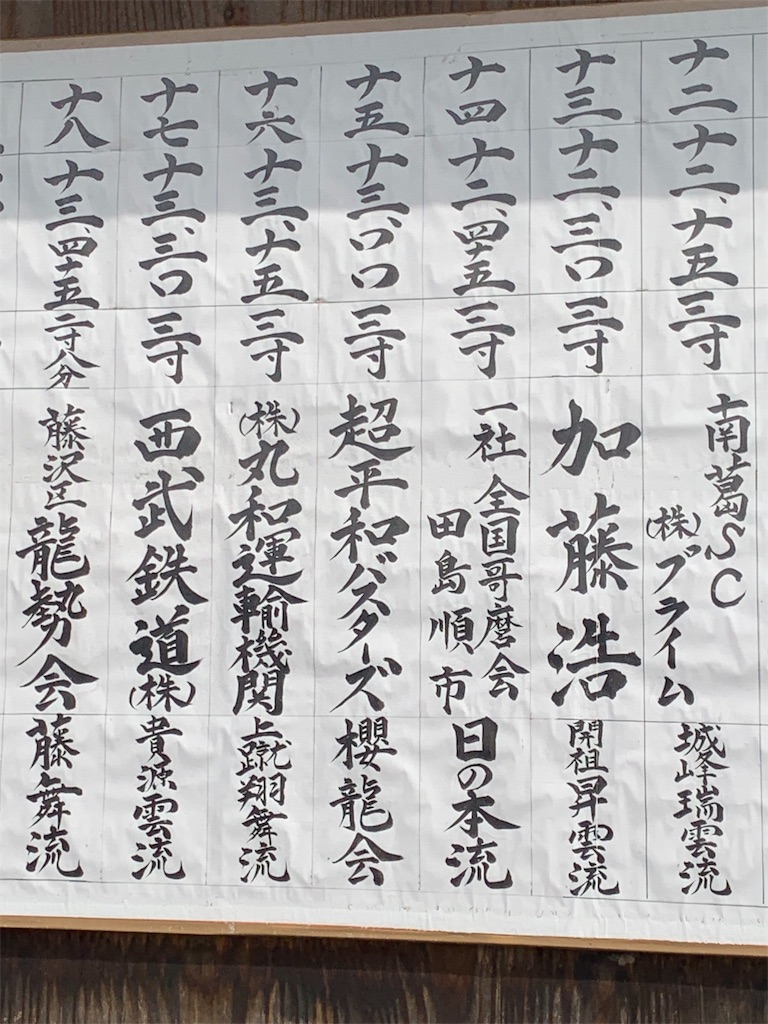 十二 十二、十五 三寸 南葛SC (株)プライム 城峰瑞雲流
十三 十二、三〇 三寸 加藤浩 開祖昇雲流
十四 十二、四十五 三寸 一社 全国哥麿会 田島順市 日の本流
十五 十三、〇〇 三寸 超平和バスターズ 櫻龍会
十六 十三、十五 三寸 (株)丸和運輸機関 上蹴翔舞流
十七 十三、三〇 三寸 西武鉄道(株) 貴源雲流
十八 十三、四十五 二寸八分 藤沢区龍勢会 藤舞流